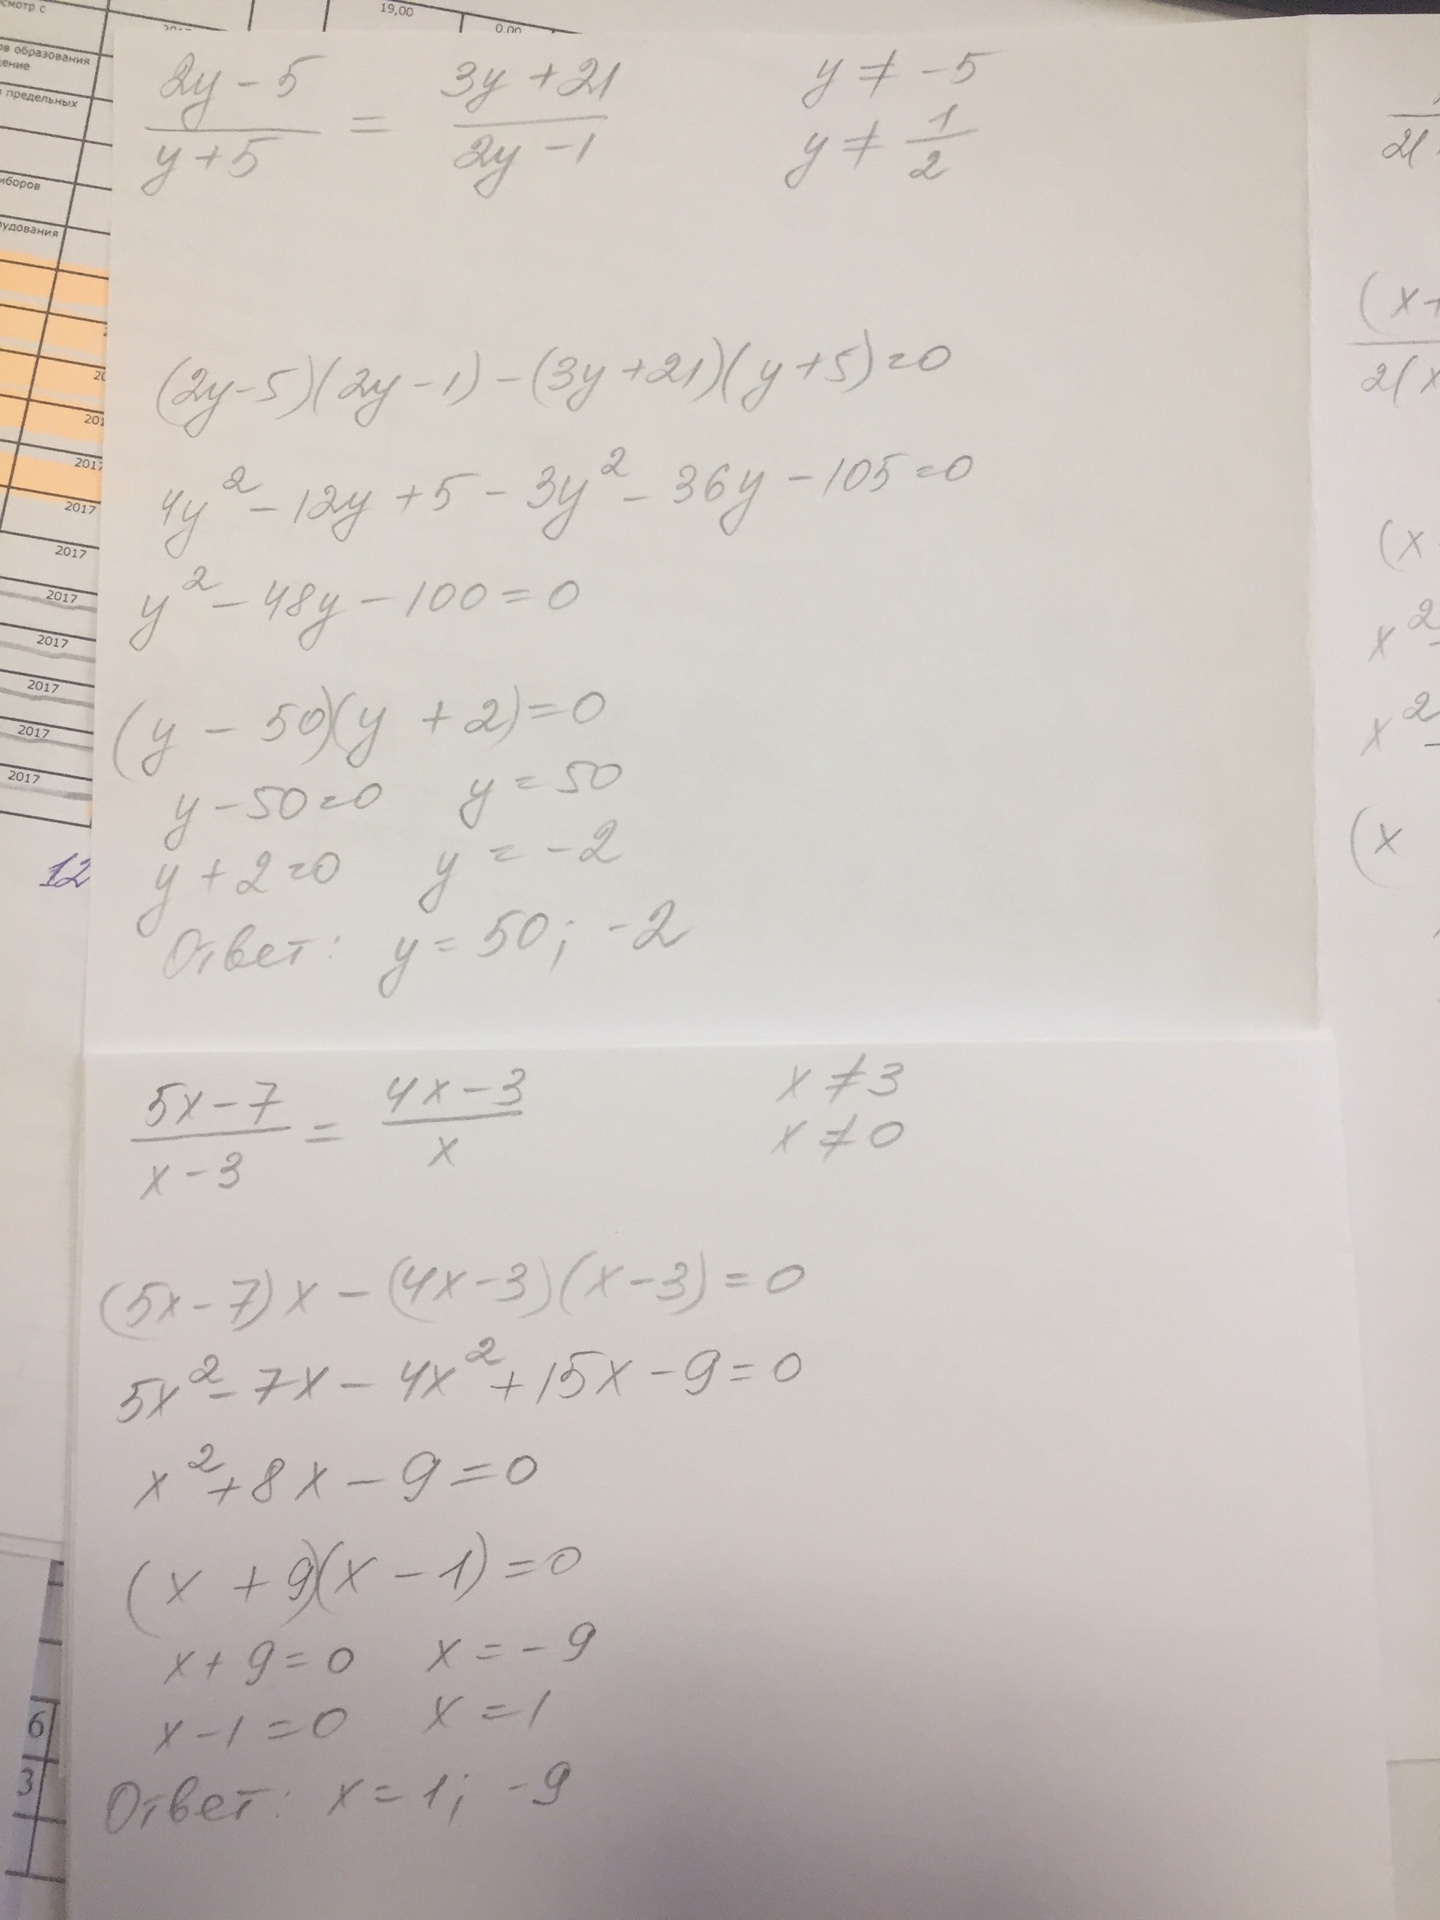 осмотр с
19,00
0,00
ов образования
дение
и предельных
иборов
рудования
2017
2017
2017
2017
2017
2017
2017
2017
12
6
3
(2y - 5)/(y + 5) = (3y + 21)/(2y - 1) y ≠ -5
y ≠ 1/2
(2y-5)(2y-1)-(3y+21)(y+5)=0
4y² - 12y + 5 - 3y² - 36y - 105 = 0
y² - 48y - 100 = 0
(y - 50)(y + 2) = 0
y - 50 = 0 y = 50
y + 2 = 0 y = -2
Ответ: y = 50; -2
(5x - 7)/(x - 3) = (4x - 3)/x x ≠ 3
x ≠ 0
(5x-7)x - (4x-3)(x-3) = 0
5x² - 7x - 4x² + 15x - 9 = 0
x² + 8x - 9 = 0
(x + 9)(x - 1) = 0
x + 9 = 0 x = -9
x - 1 = 0 x = 1
Ответ: x = 1; -9
2(
(x+
2(x
(x
x²-
x²-
(x